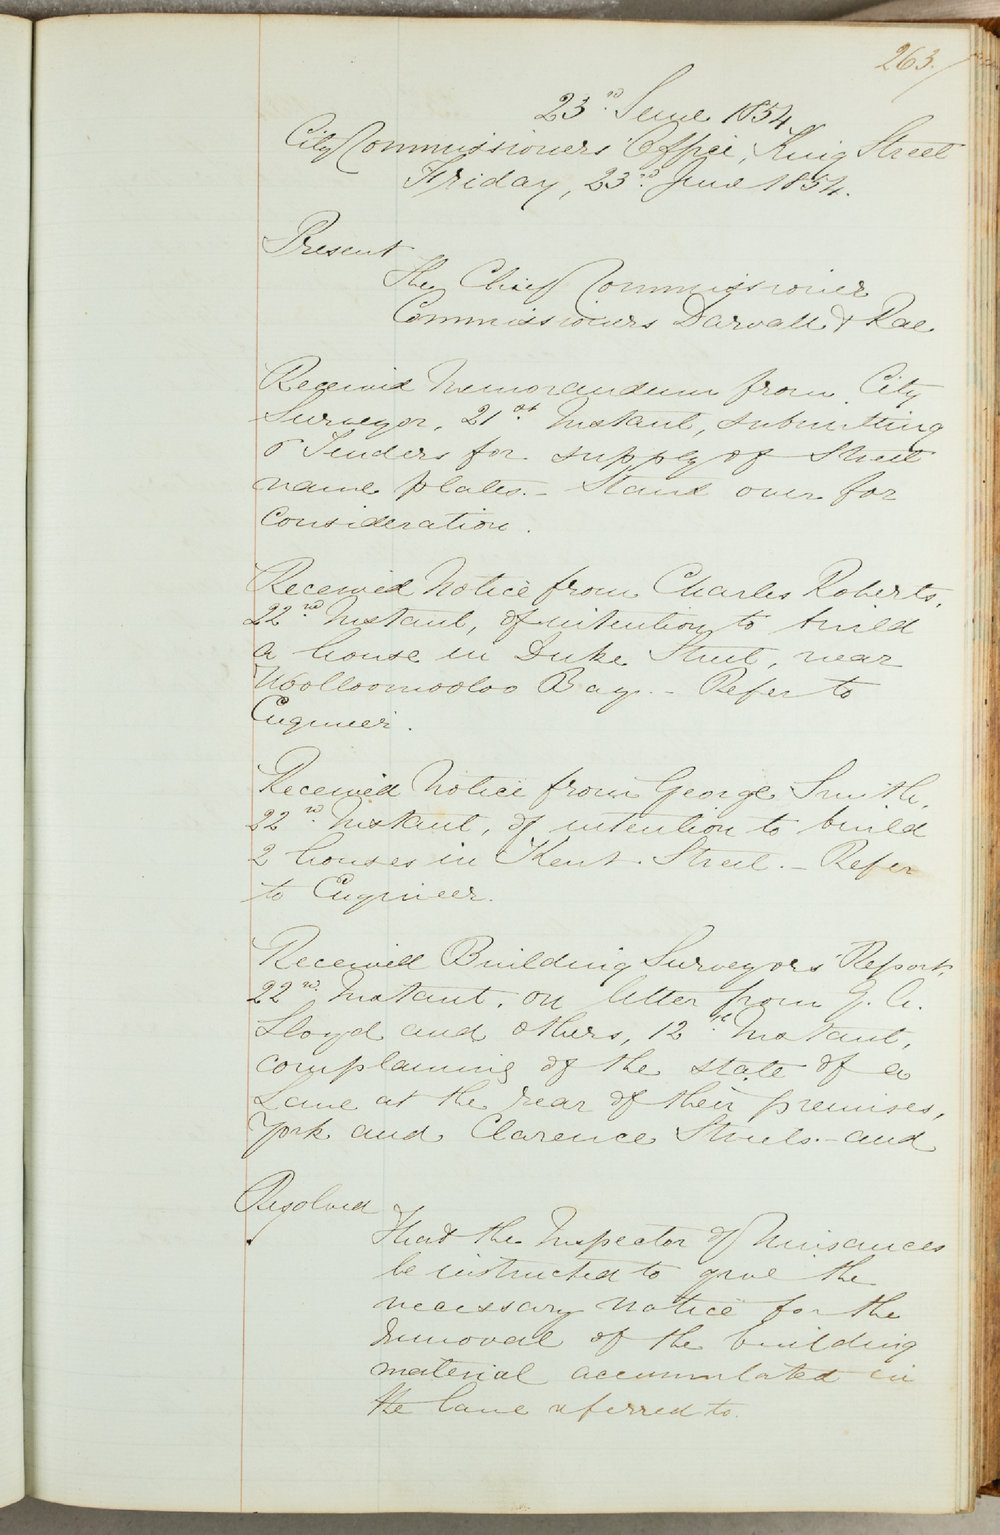 263.
23rd June 1854
City Commissioners Office, King Street
Friday, 23rd June 1854.
Present
The Chief Commissioner
Commissioners Darvall & Rae
Received Memorandum from City
Surveyor, 21st Instant, submitting
Tenders for supply of Street
name plates. - Stand over for
Consideration.
Received Notice from Charles Roberts,
22nd Instant, of intention to build
a house in Duke Street, near
Woolloomooloo Bay. - Refer to
Engineer.
Received Notice from George Smith,
22nd Instant, of intention to build
2 houses in Kent Street. - Refer
to Engineer.
Received Building Surveyors Report,
22nd Instant, on letter from G. A.
Lloyd and others, 12th Instant,
complaining of the state of a
Lane at the rear of their premises,
York and Clarence Streets. - and
Resolved
That the Inspector of Nuisances
be instructed to give the
necessary notice for the
removal of the building
material accumulated in
the lane referred to.